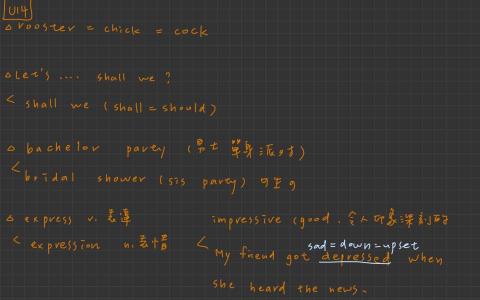 U14
△ rooster = chick = cock
△ Let's .... shall we ?
< shall we (shall = should)
△ bachelor party (男士 單身派對)
< bridal shower (sis party)
△ express v. 表達
< expression n. 表情
impressive (good. 令人印象深刻的
sad = down = upset
< My friend got depressed when
she heard the news.